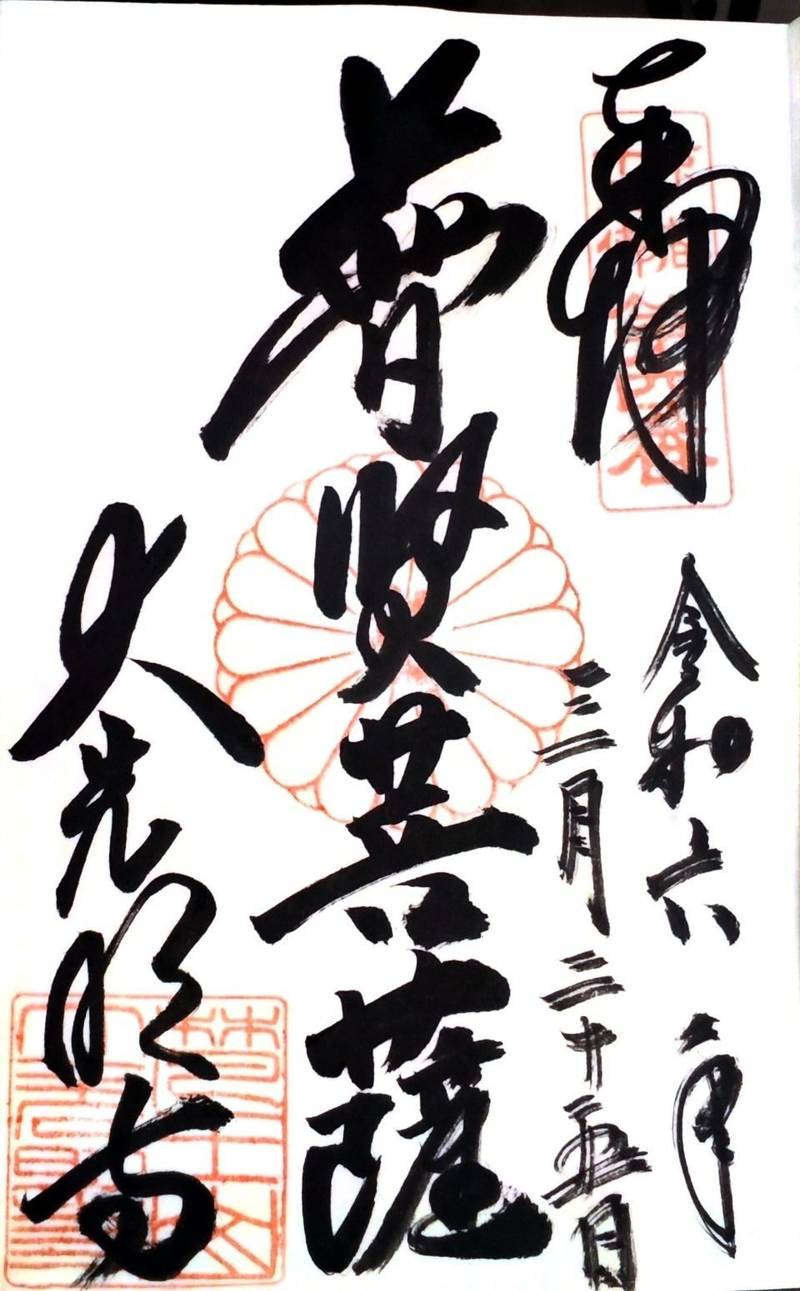 奉拝
令和六年
三月二十五日
普賢菩薩
大光明寺